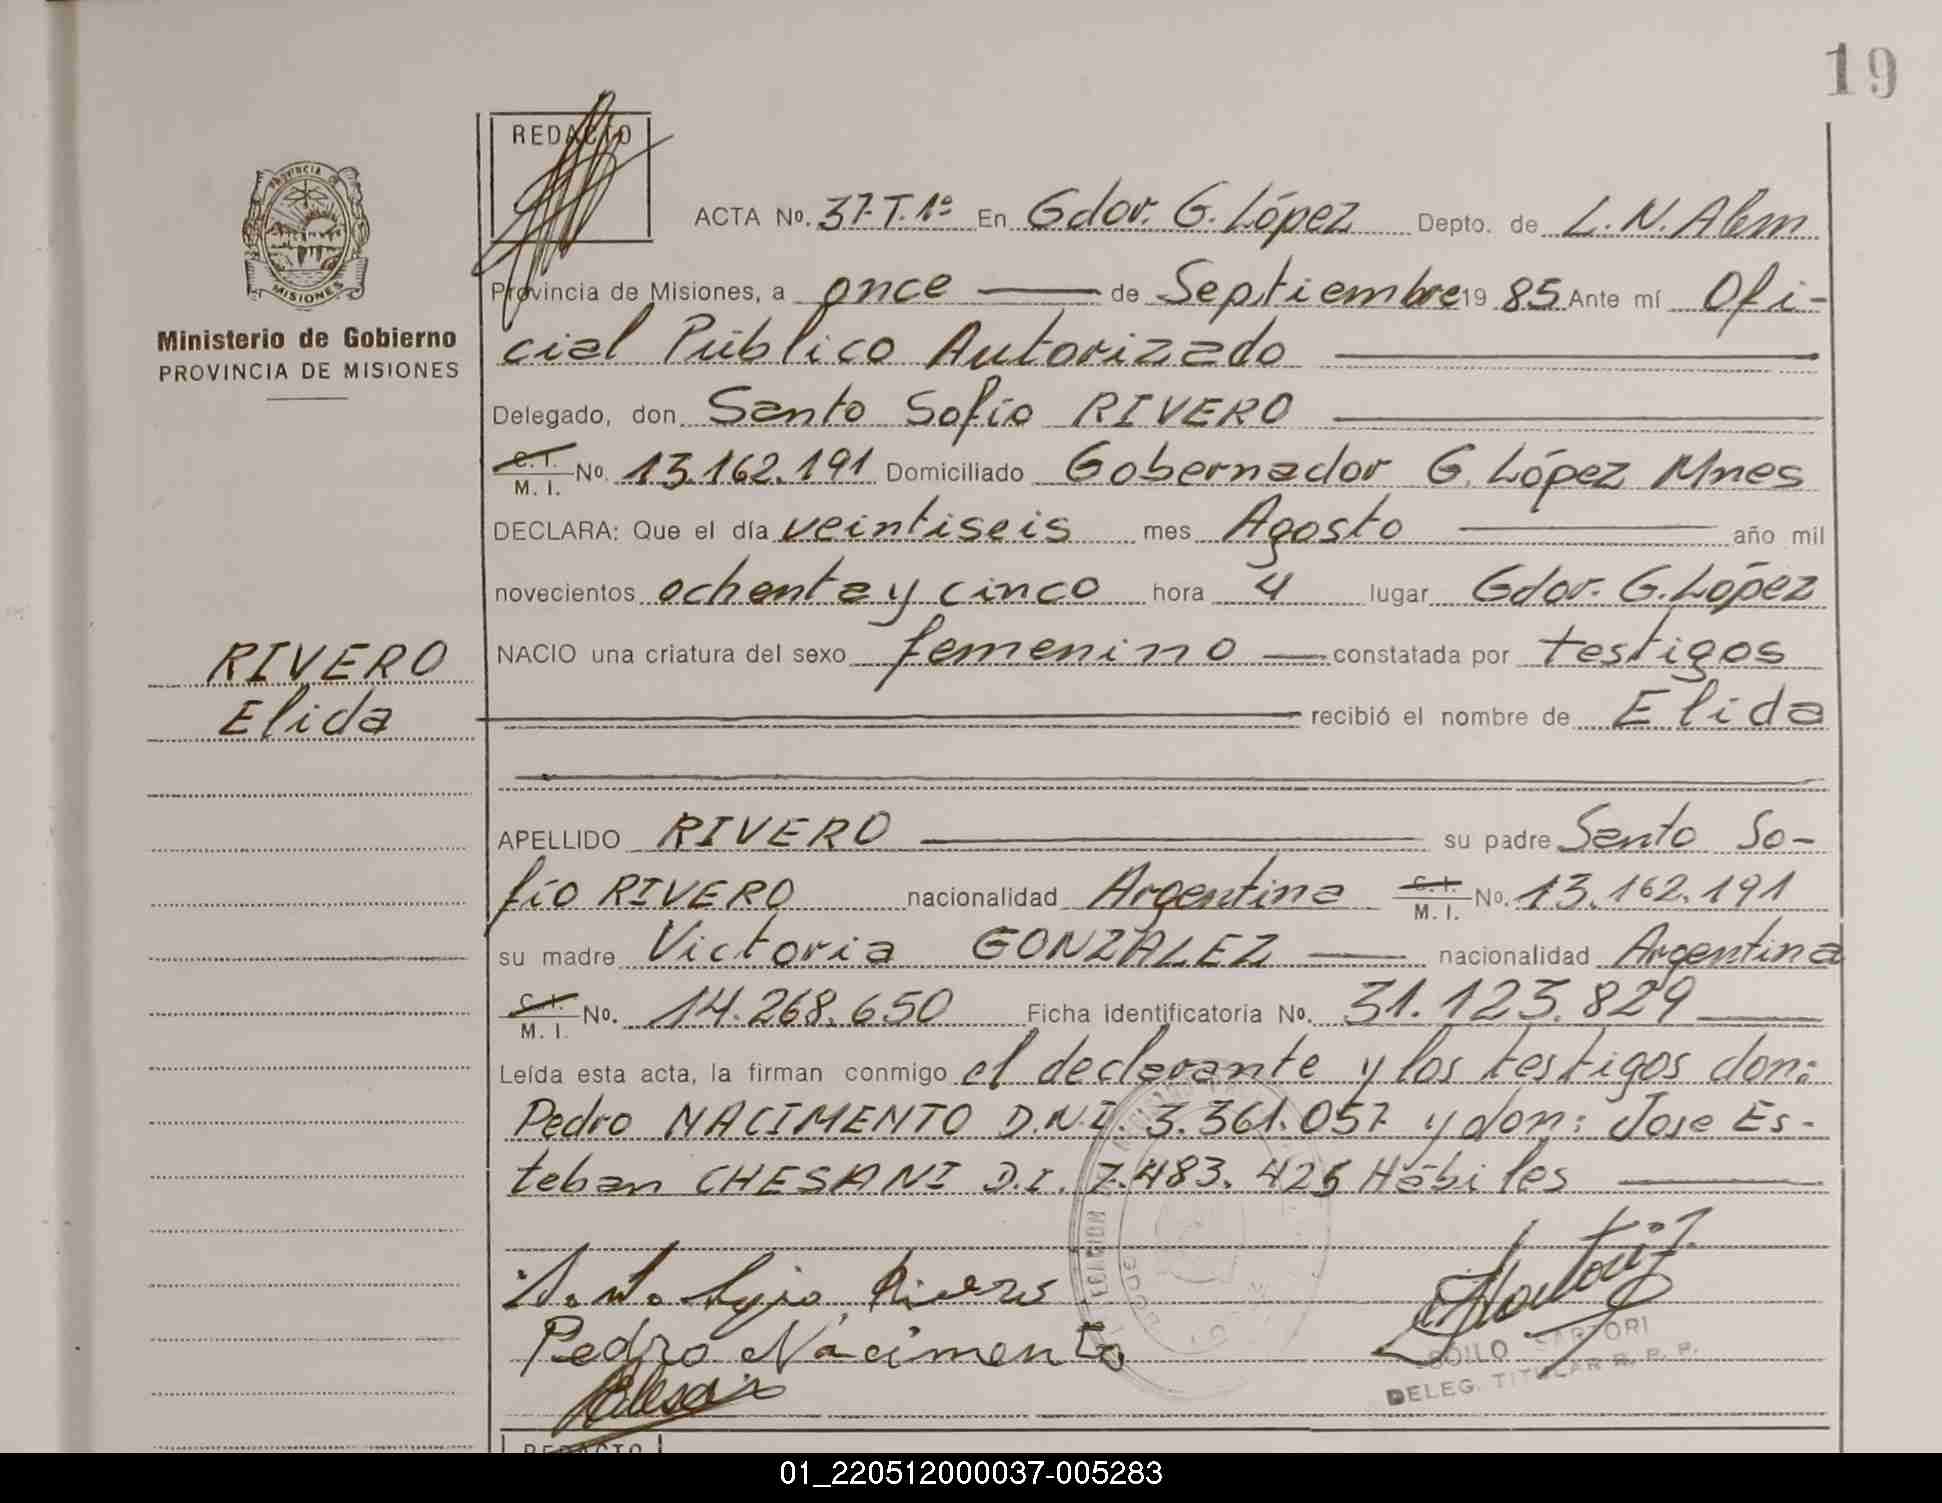 19
REDACTO
PROVINCIA DE
MISIONES
Ministerio de Gobierno
PROVINCIA DE MISIONES
ACTA No. 37-T.1º En Gdor. G. López Depto. de L. N. Alem
Provincia de Misiones, a once de Septiembre 19 85 Ante mí Ofi-
cial Público Autorizado
Delegado, don Santo Sofío RIVERO
C. I. / M. I. No. 13.162.191 Domiciliado Gobernador G. López Mnes
DECLARA: Que el día veintiseis mes Agosto año mil
novecientos ochenta y cinco hora 4 lugar Gdor. G. López
RIVERO
Elida
NACIO una criatura del sexo femenino constatada por testigos
recibió el nombre de Elida
APELLIDO RIVERO su padre Santo So-
fío RIVERO nacionalidad Argentina C. I. / M. I. No. 13.162.191
su madre Victoria GONZALEZ nacionalidad Argentina
C. I. / M. I. No. 14.268.650 Ficha identificatoria No. 31.123.829
Leída esta acta, la firman conmigo el declarante y los testigos don:
Pedro NACIMENTO D.N.I. 3.361.057 y don: Jose Es-
teban CHESANI D.I. 7.483.425 Hábiles
Santo Sofio Rivero
Pedro Nacimento
SARTORI
DELEG. TITULAR R. P. P.
REDACTO
01_220512000037-005283